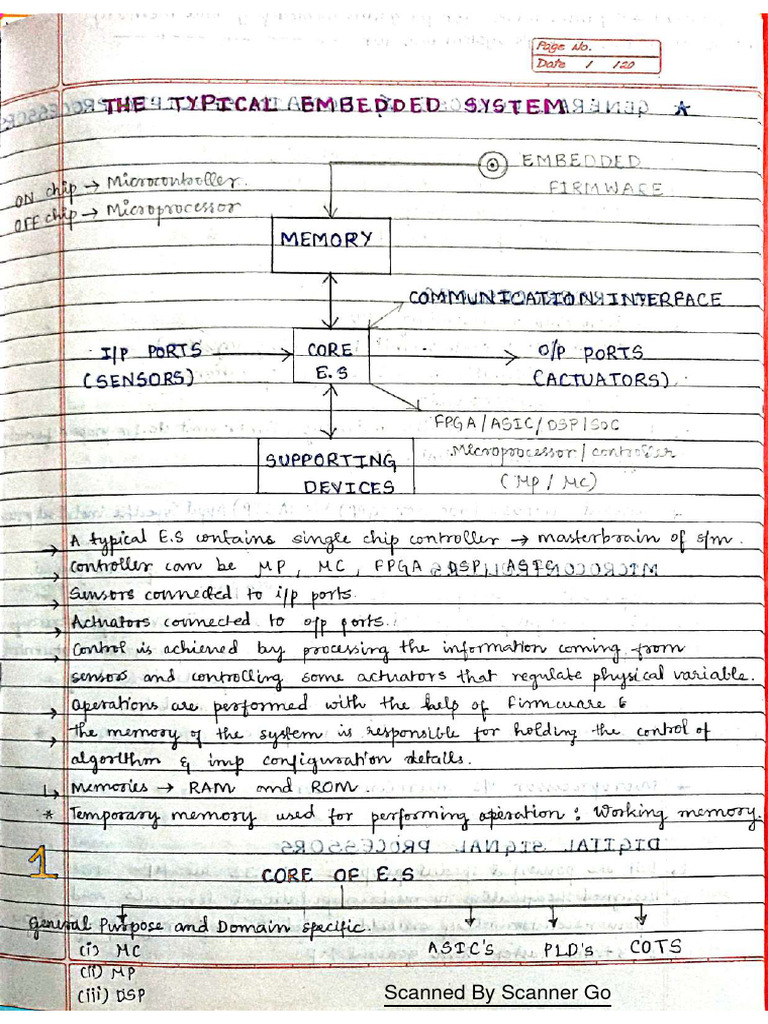 Page No.
Date 1 120
THE TYPICAL EMBEDDED SYSTEM
EMBEDDED
FIRMWARE
ON chip → Microcontroller.
OFF chip → Microprocessor
MEMORY
COMMUNICATION INTERFACE
I/P PORTS
(SENSORS)
CORE
E.S
O/P PORTS
(ACTUATORS)
FPGA/ASIC/DSP/SOC
Microprocessor/controller
(MP/MC)
SUPPORTING
DEVICES
→ A typical E.S contains single chip controller → masterbrain of s/m.
→ Controller can be MP, MC, FPGA DSP, ASIC
→ Sensors connected to i/p ports.
→ Actuators connected to o/p ports.
→ Control is achieved by processing the information coming from
sensors and controlling some actuators that regulate physical variable.
→ Operations are performed with the help of firmware &
→ the memory of the system is responsible for holding the control of
algorithm & imp configuration details.
↳ Memories → RAM and ROM
* Temporary memory used for performing operation : Working memory.
1.
CORE OF E.S
General Purpose and Domain specific.
(i) MC
ASIC's PLD's COTS
(ii) MP
(iii) DSP
Scanned By Scanner Go